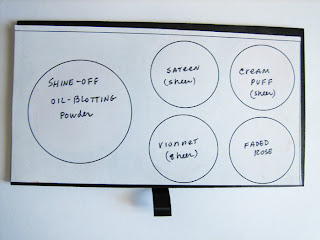 SHINE-OFF
OIL-BLOTTING
Powder
SATEEN
(sheer)
CREAM
PUFF
(sheer)
VIONNET
(sheer)
FADED
ROSE